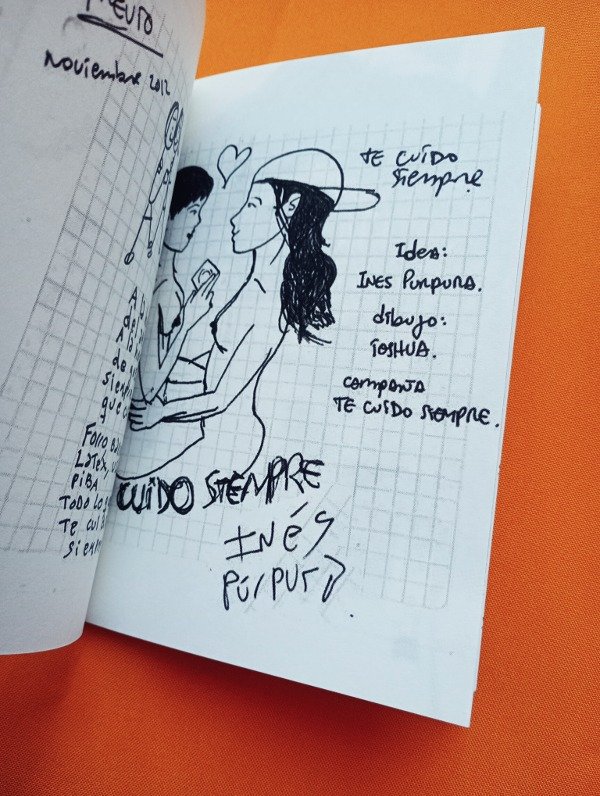 Noviembre 2012
Forro
LaTex,
PIBA
TODO LO
Te
TE CUÍDO
Siempre
Idea:
INES PURPURA.
dibujo:
ioSHUA.
CAMPAÑA
TE CUÍDO SIEMPRE.
CUÍDO SIEMPRE
INÉS
PÚRPURA.